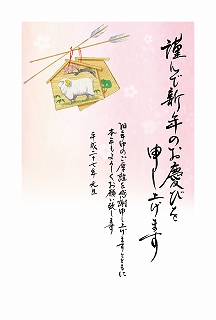 謹んで新年のお慶びを
申し上げます
旧年中のご厚誼を感謝申し上げますとともに
本年もよろしくお願い致します
平成二十七年 元旦